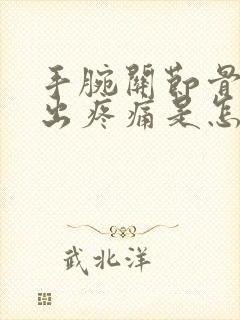 手腕關節骨
出疼痛是怎
武北洋